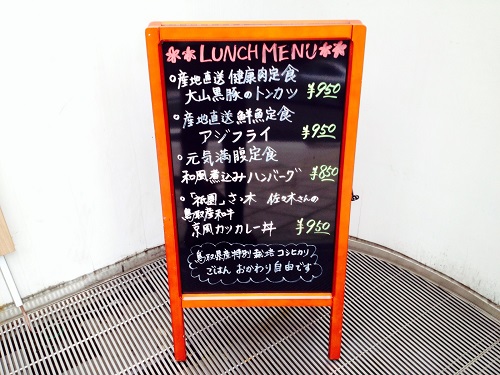 LUNCH MENU
産地直送 健康肉定食
大山黒豚のトンカツ ¥950
産地直送鮮魚定食
アジフライ ¥950
元気満腹定食
和風煮込みハンバーグ ¥850
「祇園」さゝ木 佐々木さんの
鳥取産和牛
京風カツカレー丼 ¥950
鳥取県産特別栽培コシヒカリ
ごはん おかわり自由です